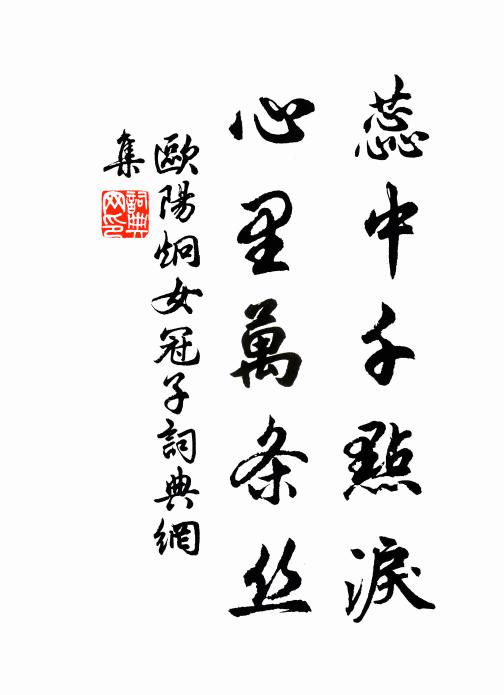 蕊中千點淚
心里萬条丝
歐陽炯女冠子詞典網
集
詞典网印